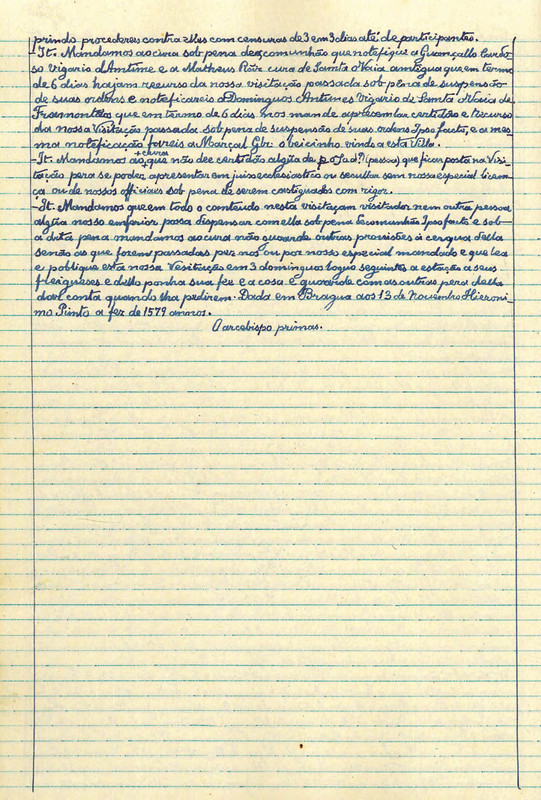 prindo procedereis contra elles com censuras de 3 em 3 dias até de participantes.
-It. Mandamos ao cura sob pena de excomunhão que notefique a Guançallo Cardo-
so Vigario d'Antime e a Matheus Roiz cura de Santa Maia antigua que em termo
de 6 dias hajam recurso da nossa visitação passada sob pena de suspensão
de suas ordens e noteficareis a Dominguos Antunes Vigario de Santa Maria de
que em termo de 6 dias nos mande apresentar certidão e Recurso
da nossa Visitação passada sob pena de suspensão de suas ordens Ipso facto, e a mes-
ma noteficação fareis a Marçal Glz o beicinho vindo a esta Villa.
+ cura
-It. Mandamos ao + que não dee certidão algũa de (pessoa) que ficar posta na Visi-
tação pera se poder apresentar em juiso ecclesiastico ou secullar sem nossa especial licem-
ça ou de nossos officiais sob pena de serem castiguados com rigor.
-It. Mandamos que em todo o conteudo nesta visitaçam visitador nem outra pessoa
algũa nosso emferior possa dispensar com ella sob pena Excomunhão Ipso facto e sob-
a dita pena mandamos ao cura não guarde outras provisões á cerqua della
senão as que forem passadas per nós ou por nosso especial mandado e que lea
e poblique esta nossa Vesitação em 3 domingos loguo seguintes a estação a seus
freigueses e dello ponha sua fee e a cosa e guarde com as outras pera della
dar conta quando lha pedirem. Dada em Bragua aos 13 de Novembro Hieroni-
mo Pinto a fez de 1579 annos.
O arcebispo primas.